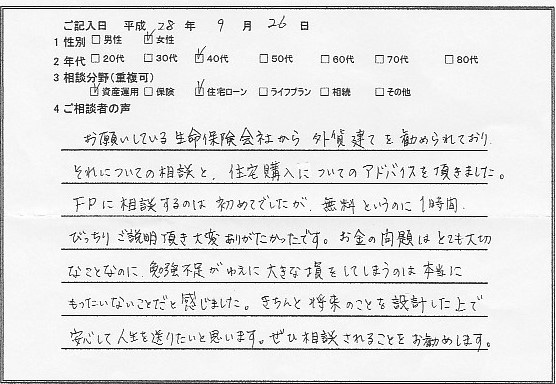 ご記入日 平成 28 年 9 月 26 日
1 性別 □男性 ☑女性
2 年代 □20代 □30代 ☑40代 □50代 □60代 □70代 □80代
3 相談分野(重複可)
☑資産運用 □保険 ☑住宅ローン □ライフプラン □相続 □その他
4 ご相談者の声
お願いしている生命保険会社から外貨建てを勧められており、
それについての相談と、住宅購入についてのアドバイスを頂きました。
FPに相談するのは初めてでしたが、無料というのに1時間
びっちりご説明頂き大変ありがたかったです。お金の問題はとても大切
なことなのに、勉強不足がゆえに大きな損をしてしまうのは本当に
もったいないことだと感じました。きちんと将来のことを設計した上で
安心して人生を送りたいと思います。ぜひ相談されることをお勧めします。